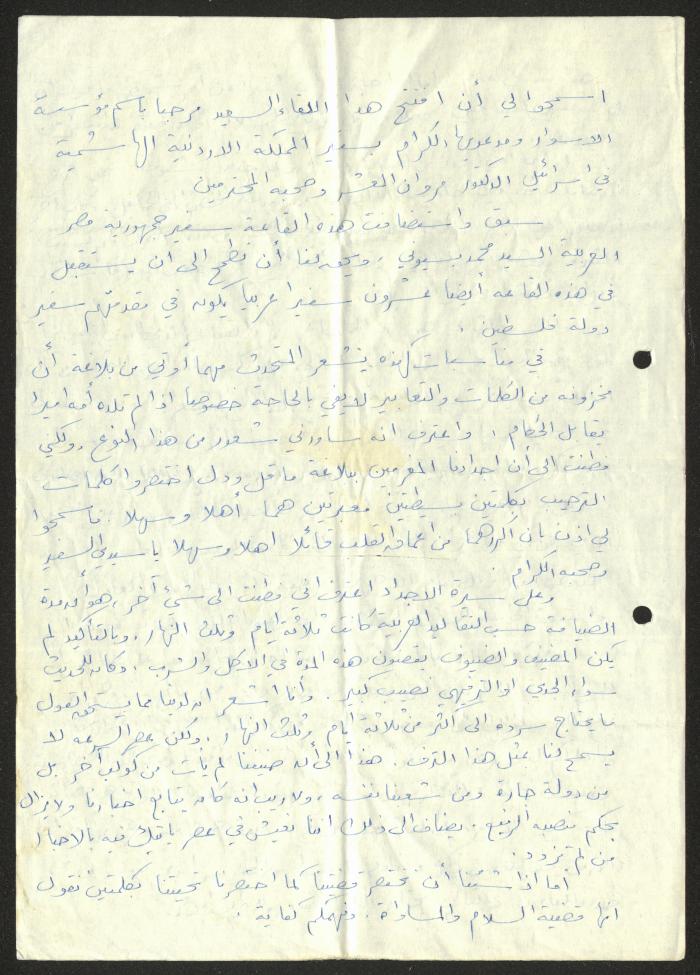 اسمحوا لي أن افتتح هذا اللقاء السعيد مرحبا باسم مؤسسة
الاسوار ومدعويها الكرام بسفير المملكة الاردنية الهاشمية
في اسرائيل الدكتور مروان المعشر وصحبه المحترمين.
سبق واستضافت هذه القاعة سفير جمهورية مصر
العربية السيد محمد بسيوني، ويحق لنا أن نطمح الى ان يستقبل
في هذه القاعه أيضا عشرون سفيرا عربيا يكون في مقدمتهم سفير
دولة فلسطين.
في مناسبات كهذه يشعر المتحدث مهما أوتي من بلاغة أن
مخزونه من الكلمات والتعابير لا يفي بالحاجة خصوصا اذا لم تلده أمه اميرا
يقابل الحكام، واعترف انه ساورني شعور من هذا النوع، ولكني
فطنت الى أن اجدادنا المغرمين ببلاغة ما قل ودل اختصروا كلمات
الترحيب بكلمتين بسيطتين معبرتين هما أهلا وسهلا. فاسمحوا
لي اذن بان اكررهما من اعماق القلب قائلا اهلا وسهلا يا سيدي السفير
وصحبه الكرام.
وعلى سيرة الاجداد اعترف اني فطنت الى شيء آخر، هو أن مدة
الضيافة حسب التقاليد العربية كانت ثلاثة ايام وثلث النهار، وبالتأكيد لم
يكن المضيف والضيوف يقضون هذه المدة في الاكل والشرب، وكان للحديث
سواء الجدي او الترفيهي نصيب كبير. وأنا اشعر ان لدينا مما يستحق القول
ما يحتاج سرده الى اكثر من ثلاثة ايام وثلث النهار، ولكن عصر السرعه لا
يسمح لنا بمثل هذا الترف. هذا الى أن ضيفنا لم يأت من كوكب آخر بل
من دولة جارة ومن شعبنا نفسه، ولا ريب انه كان يتابع اخبارنا ولا يزال
بحكم منصبه الرفيع. يضاف الى ذلك اننا نعيش في عصر يأتيك فيه بالاخبار
من لم تزود.
أما اذا شئنا أن نختصر قضيتنا كما اختصرنا تحيتنا بكلمتين نقول
انها قضية السلام والمساواة. وفهمكم كفاية.